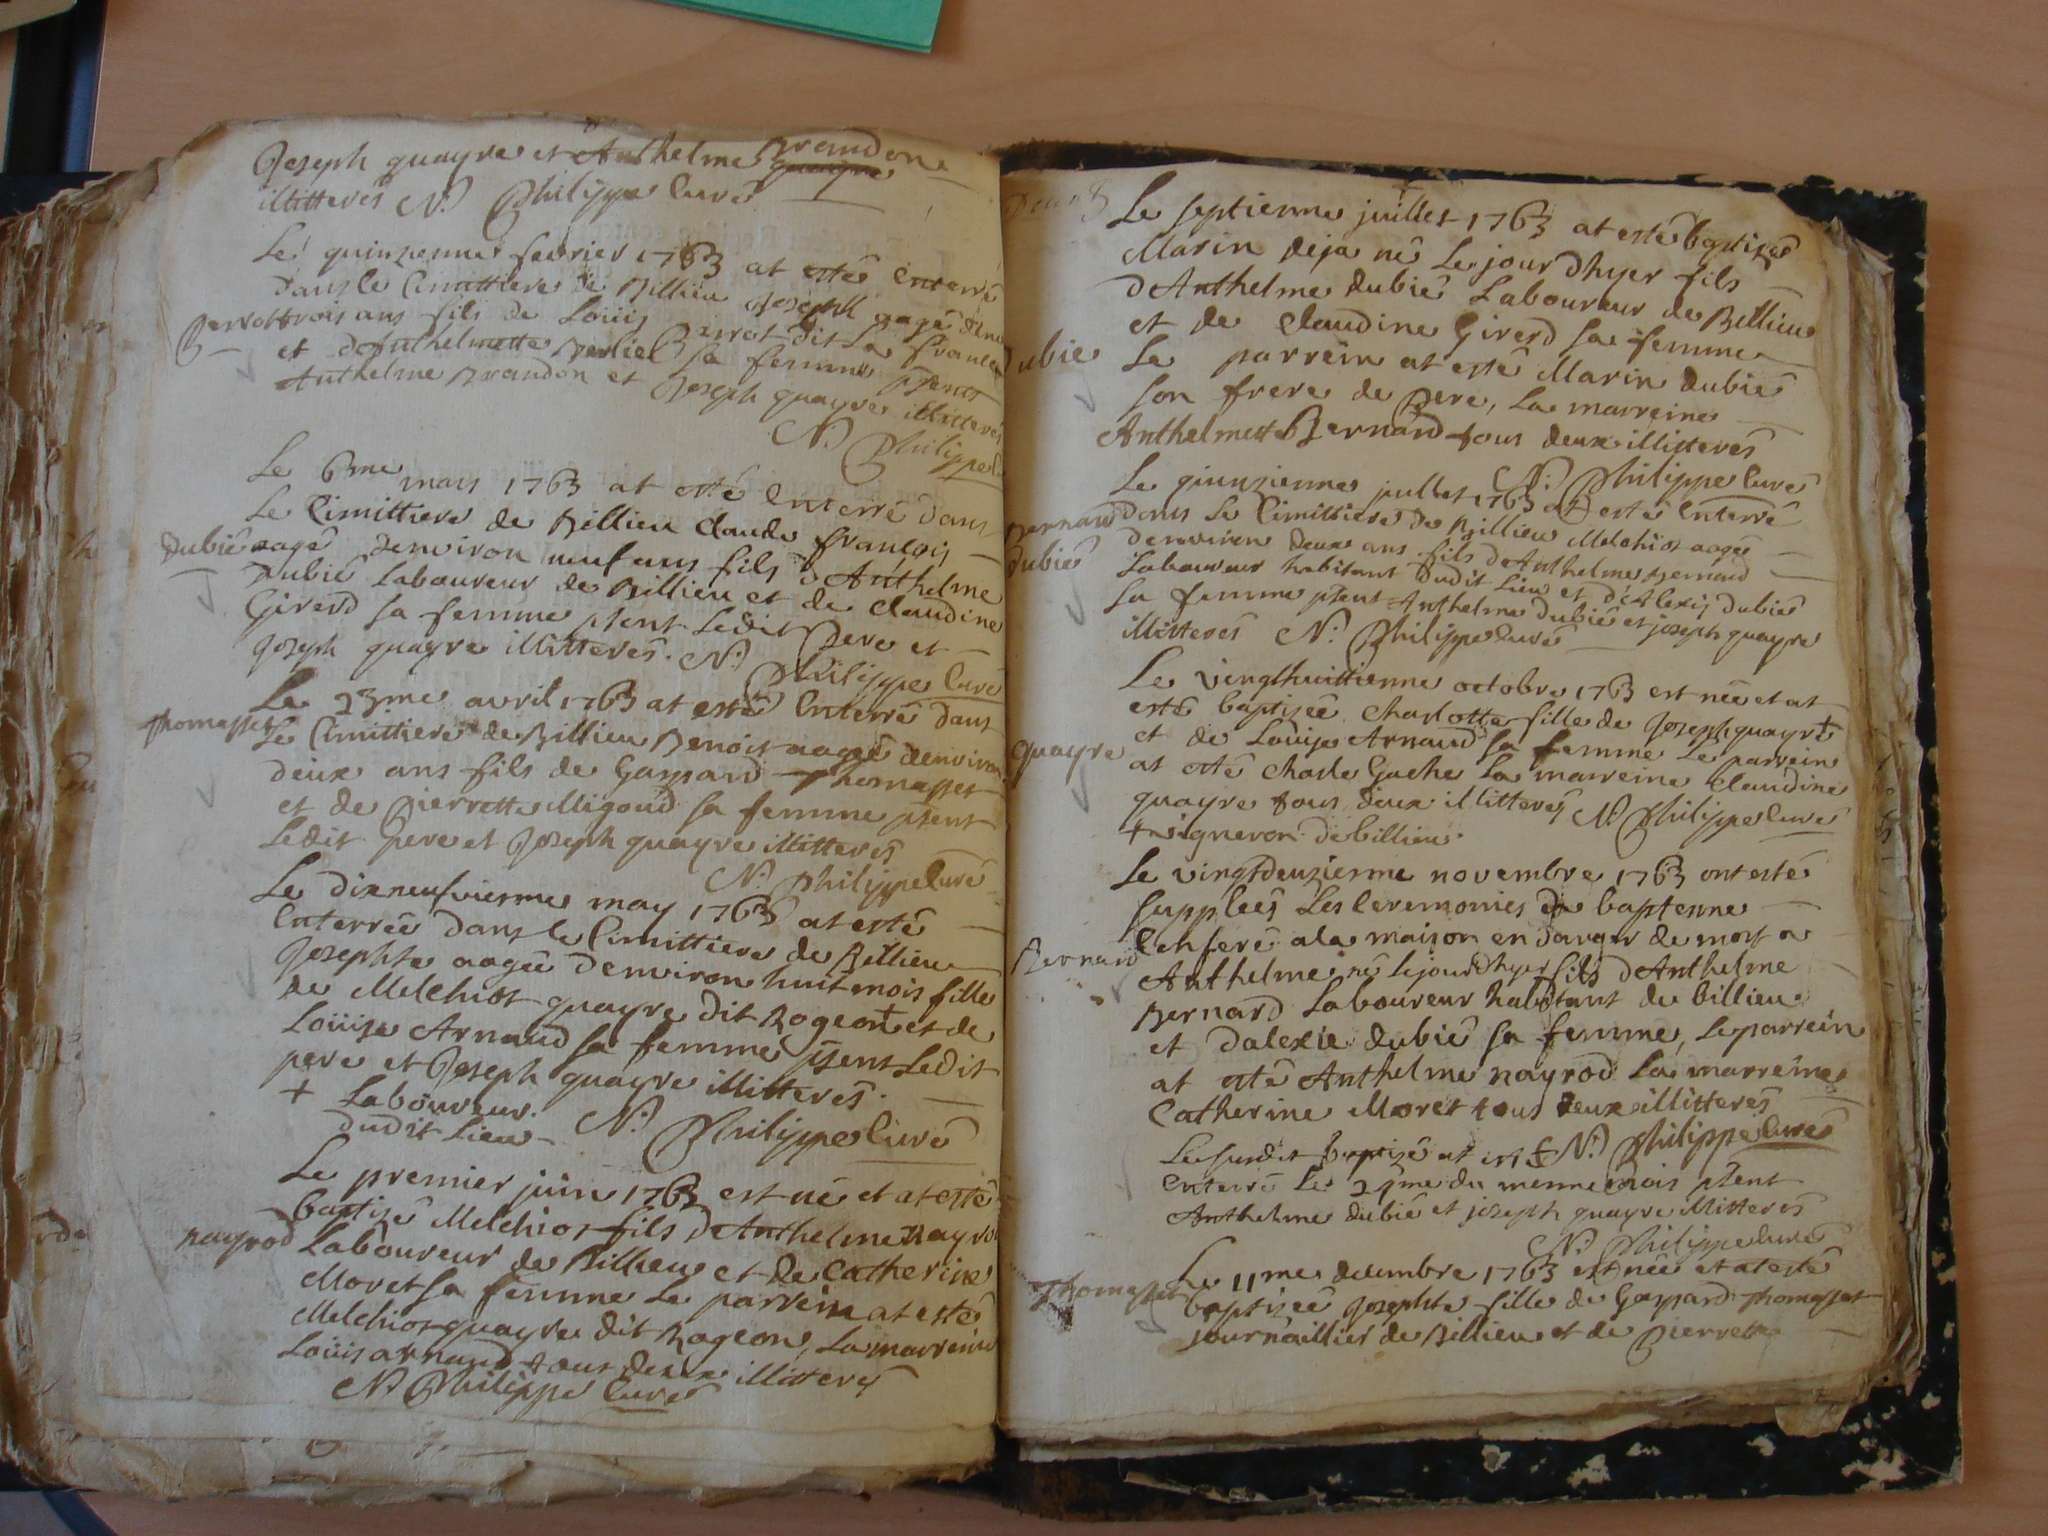 Joseph quayre et Anthelme Brandon
quayre
illitterés N. Philippe Curé
Le quinzieme fevrier 1763 at esté enterré
dans le Cimittiere de Billieu Joseph aagé denv
Perrot
trois ans fils de Loüis Perrot dit La france
et d'Anthelmette Berliet sa femme pñent
Anthelme Brandon et Joseph quayre illitterés
N. Philippe
Le 6me mars 1763 at esté enterré dans
Le Cimittiere de Billieu Claude françois
dubié
aagé denviron neuf ans fils d'Anthelme
dubié Laboureur de Billieu et de Claudine
Girerd sa femme pñent Ledit Pere et
Joseph quayre illitterés. N. Philippe Curé
Le 23me avril 1763 at esté enterré dans
Thomasset
Le Cimittiere de Billieu Benoit aagé denviron
deux ans fils de Gaspard Thomasset
et de Pierrette Migoud sa femme pñent
Ledit Pere et Joseph quayre illitterés
N. Philippe Curé
Le dixneufvieme may 1763 at esté
Enterrée dans le Cimittiere de Billieu
Josephte aagée denviron huit mois fille
de Melchior quayre dit Rogeon + et de
Loüise Arnaud sa femme pñent Ledit
pere et Joseph quayre illitterés.
+ Laboureur
dudit Lieu N. Philippe Curé
Le premier juin 1763 est né et at esté
baptisé Melchior fils d'Anthelme Nayrod
nayrod
Laboureur de Billieu et de Catherine
Moret sa femme Le parrein at esté
Melchior quayre dit Rogeon, La marreine
Loüis arnaud tout deux illitterés
N. Philippe Curé
Le septieme juillet 1763 at esté baptisé
Marin deja né Le jour dhyer fils
d'Anthelme dubié Laboureur de Billieu
et de Claudine Girerd sa femme
dubié
Le parrein at esté Marin dubié
son frere de Pere, La marreine
Anthelmette Bernard tous deux illitterés
N. Philippe Curé
Le quinzieme juillet 1763 at esté enterré
Bernard
dans Le Cimittiere de Billieu Melchior aagé
denviron deux ans fils d'Anthelme Bernard
dubié
Laboureur habitant dudit Lieu et d'Alexis dubié
sa femme pñent Anthelme dubié et joseph quayre
illitterés N. Philippe Curé
Le vingthuittieme octobre 1763 est née et at
esté baptisée Charlotte fille de Joseph quayre +
et de Loüise Arnaud sa femme Le parrein
quayre
at esté Charle Gache La marreine Claudine
quayre tous deux illitterés N. Philippe Curé
+ vigneron de billieu.
Le vingtdeuzieme novembre 1763 ont esté
supplées Les Ceremonies de bapteme
Bernard
Conferé a la maison en danger de mort a
Anthelme né le jour dhyer fils d'Anthelme
Bernard Laboureur habitant de billieu
et dalexie dubié sa femme, Le parrein
at esté Anthelme nayrod La marreine
Catherine Moret tous deux illitterés
N. Philippe Curé
Le susdit baptisé at esté
enterré Le 25me du meme mois pñent
Anthelme dubié et joseph quayre illitterés
N. Philippe Curé
Thomasset
Le 11me decembre 1763 est née et at esté
baptisée Josephte fille de Gaspard Thomasset
journaillier de Billieu et de Pierrette